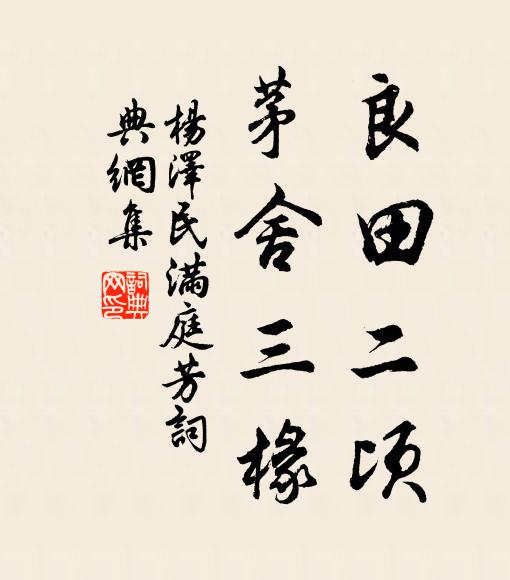 良田二頃
茅舍三椽
楊澤民滿庭芳詞
典網集
詞典
网印